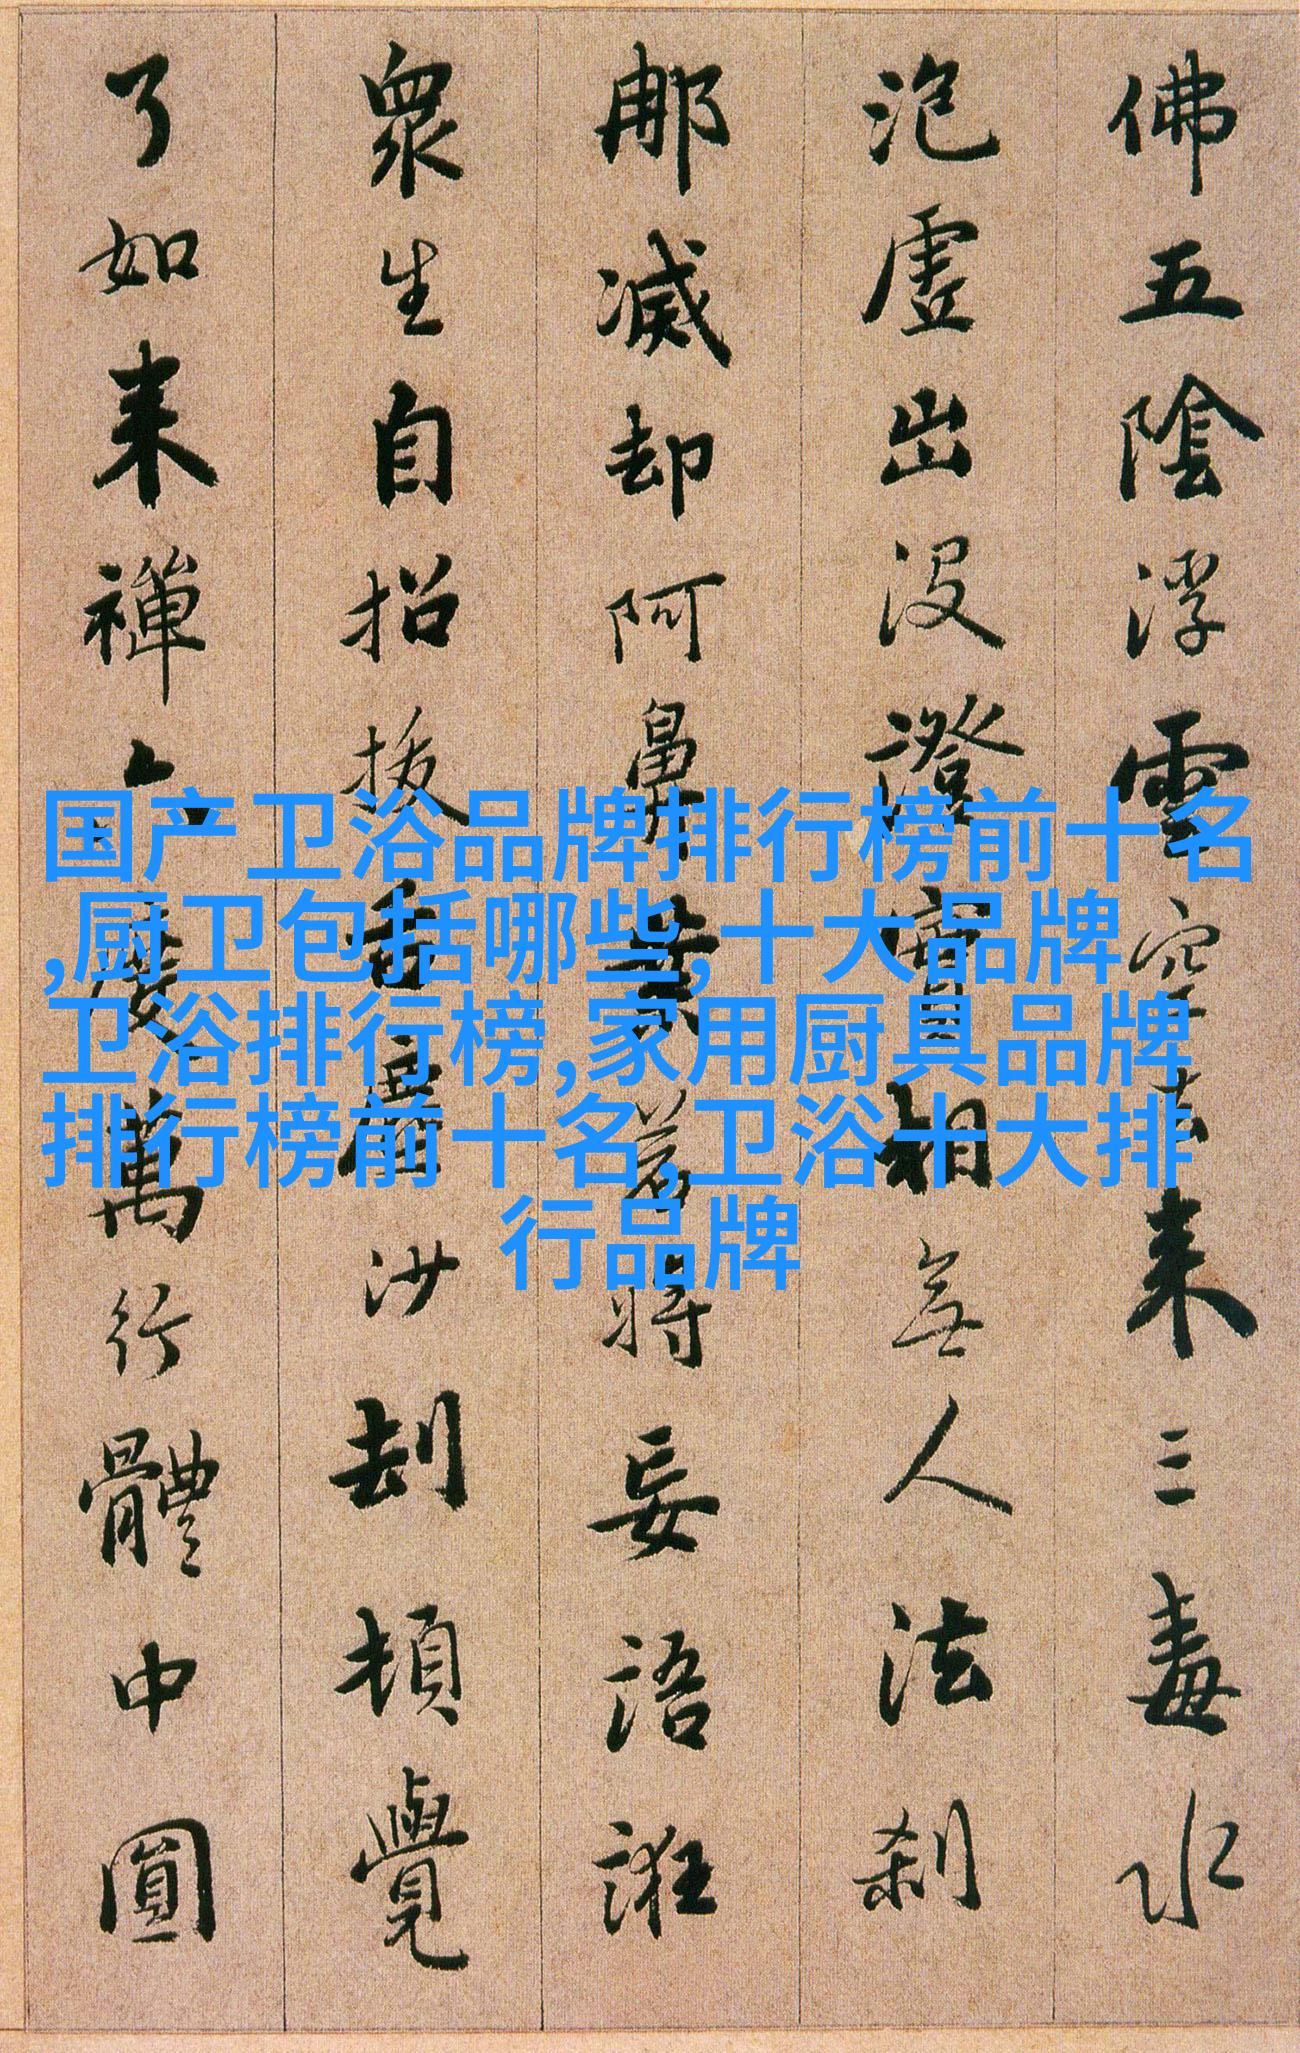 佛五陰浮雲空去来三毒水
泡虛出没證實相無人法刹
那滅却阿鼻業若將妄語誑
衆生自招拔舌塵沙劫頓覺
了如来禪六度萬行體中圓
国产卫浴品牌排行榜前十名
,厨卫包括哪些,十大品牌
卫浴排行榜,家用厨具品牌
排行榜前十名,卫浴十大排
行品牌